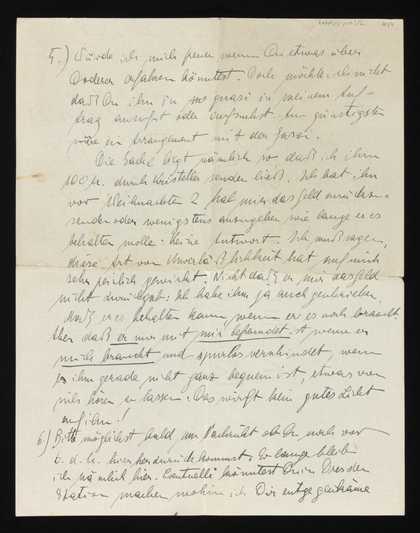 5.) Würde ich mich freuen wenn Du etwas über
Doderer erfahren könntest. Doch möchte ich nicht
daß Du ihn in in meinem Auf-
trag aufsuchst. Am günstigsten
wäre ein Arrangement mit der
Die Sache liegt nämlich so daß ich ihm
100 M. durch senden ließ. Ich bat ihn
vor Weihnachten 2 mal mir das Geld zurückzu-
senden oder wenigstens anzugeben wie lange er es
behalten wolle: keine Antwort. Ich muß sagen,
diese Art von hat auf mich
sehr peinlich gewirkt. Nicht daß er mir das Geld
nicht Ich habe ihm ja auch geschrieben,
daß er es behalten kann, wenn er es noch braucht.
Aber daß er nur mit mir befreundet ist wenn er
mich braucht und spurlos verschwindet, wenn
es ihm gerade nicht ganz bequem ist, etwas von
sich hören zu lassen. Das wirft kein gutes Licht
auf ihn!
6.) Bitte möglichst bald um Nachricht ob Du noch vor
hierher zurückkommst. So lange bleibe
ich nämlich hier. Eventuell könntest Du in Dresden
Station machen wohin ich Dir entgegenkäme